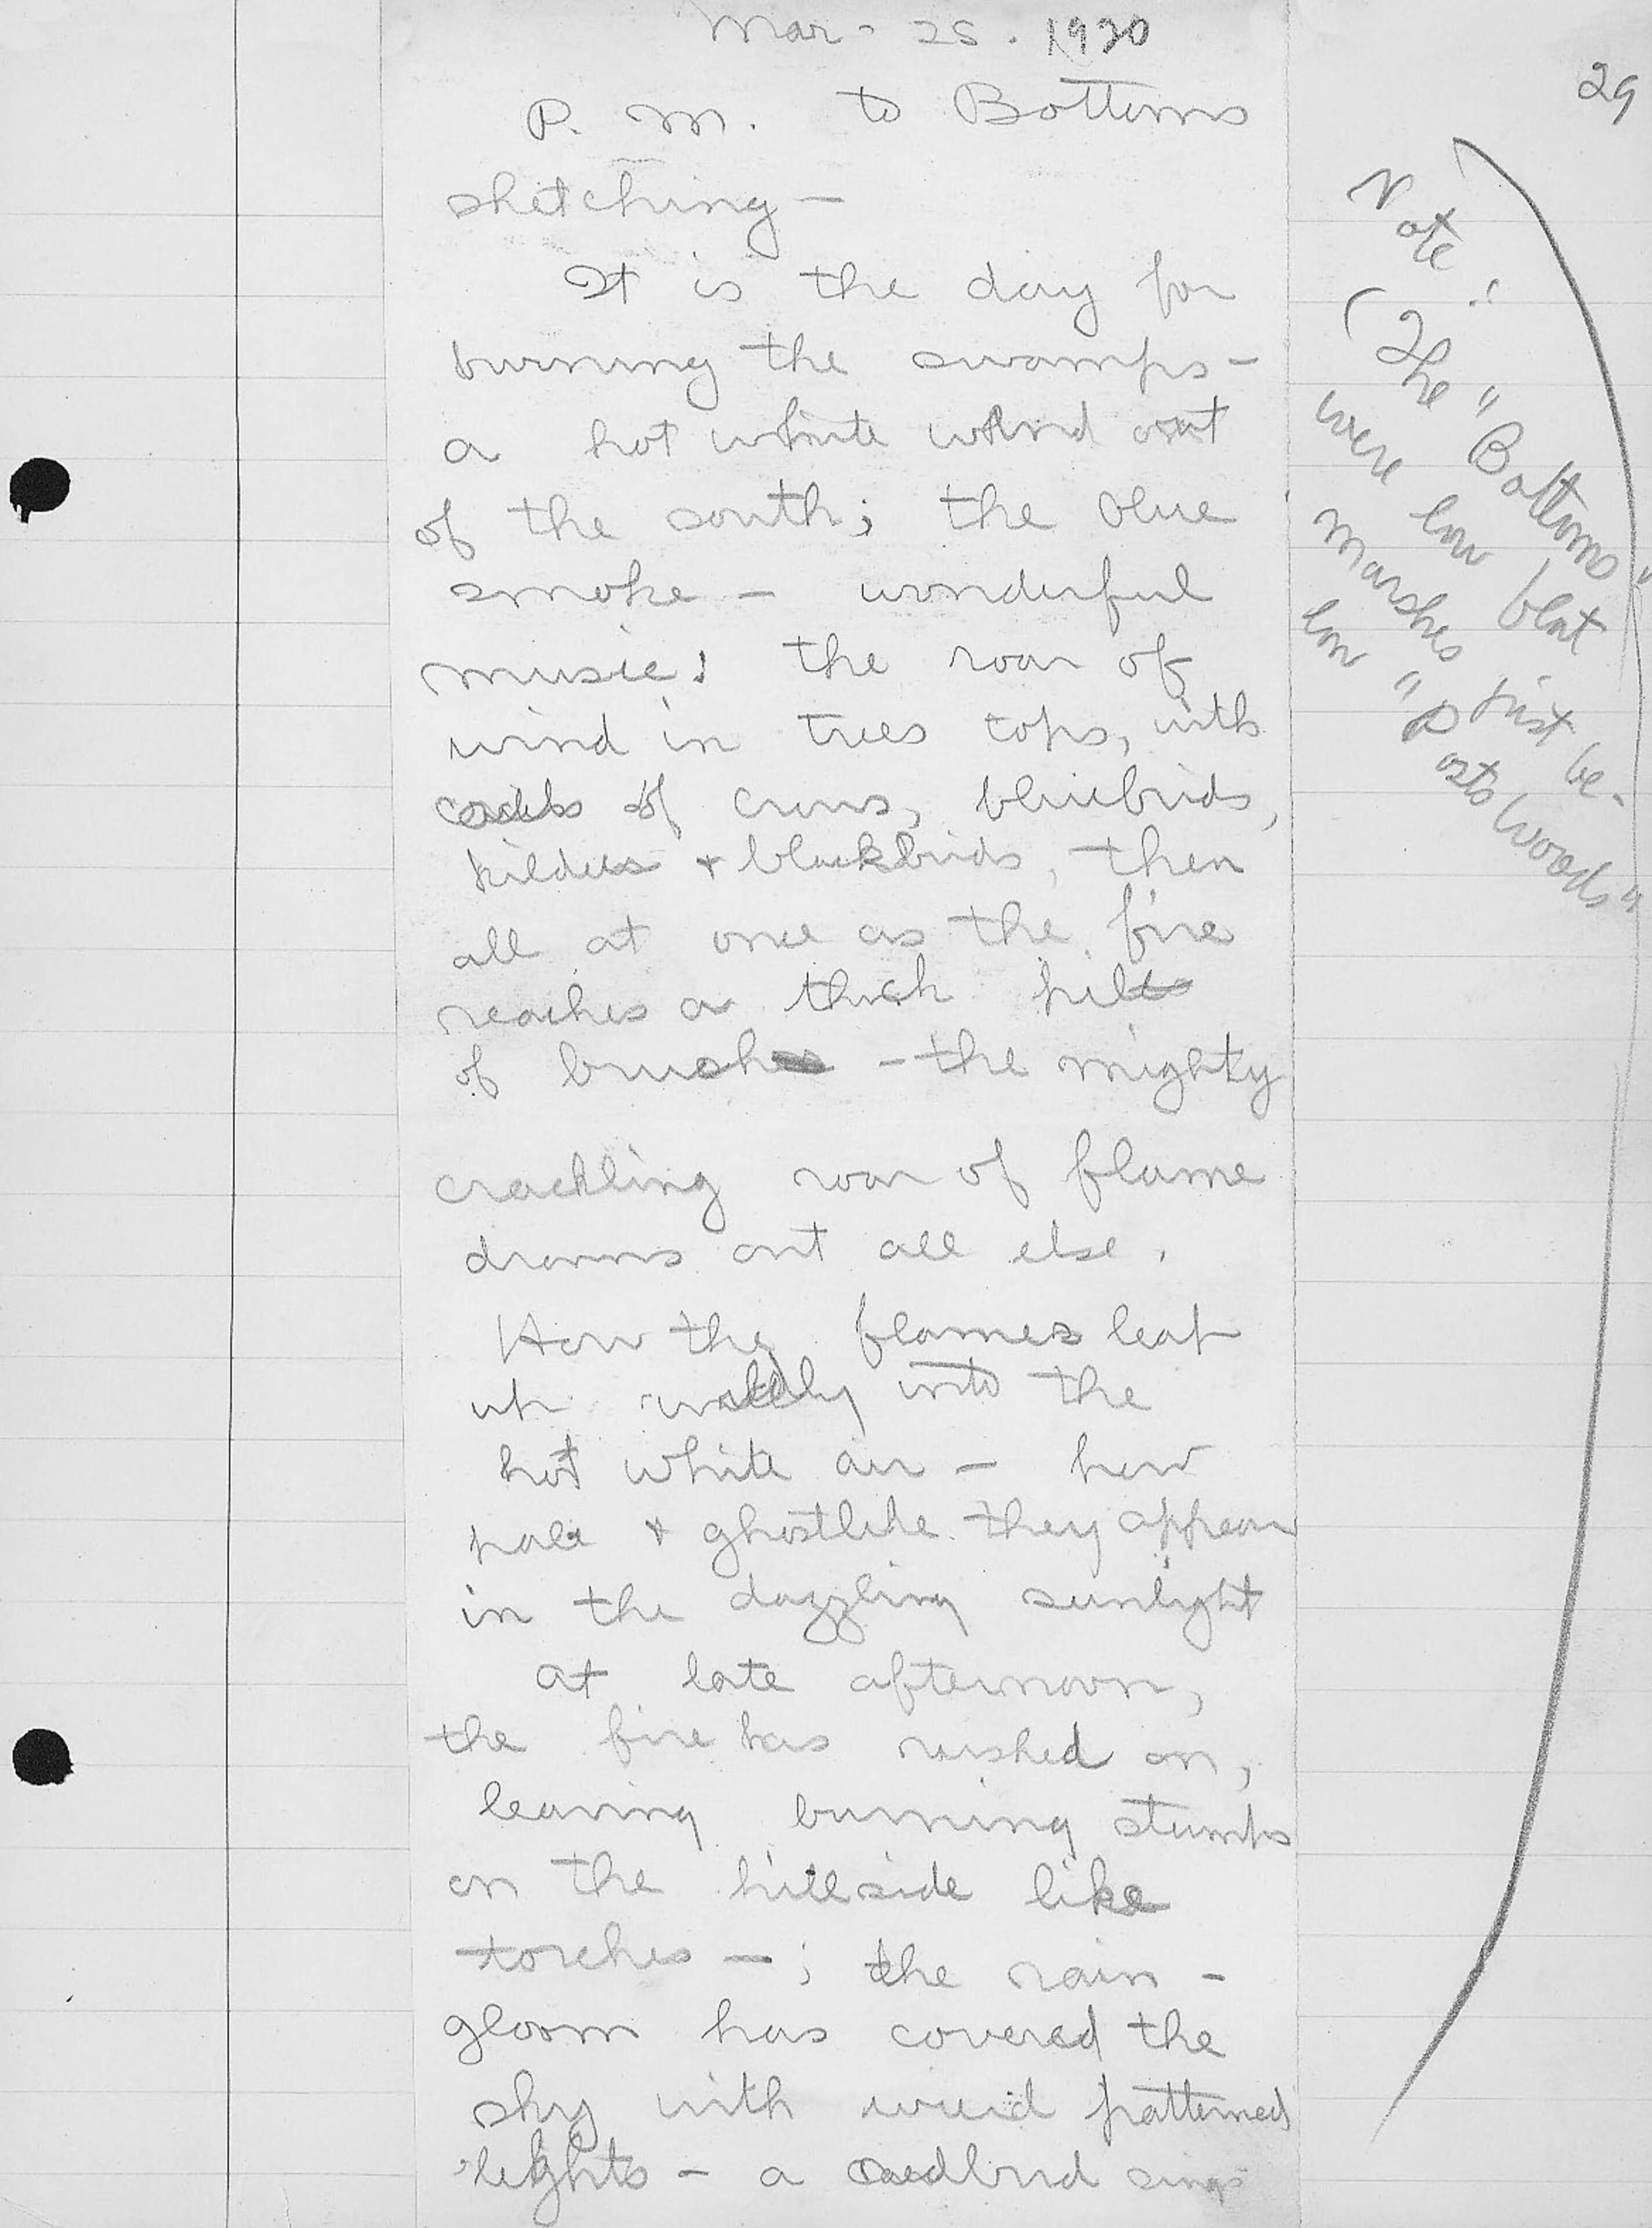 Mar - 25. 1920
29
P. M. to Bottoms
sketching —
It is the day for
burning the swamps -
a hot white wind out
of the south; the blue
smoke — wonderful
music! the roar of
wind in trees tops, with
of crows, bluebirds,
kildees + blackbirds, then
all at once as the fire
reaches a thick pile
of brush - the mighty
crackling roar of flame
drowns out all else.
How the flames leap
up wildly into the
hot white air — how
pale + ghostlike they appear
in the dazzling sunlight
At late afternoon,
the fire has rushed on,
leaving burning stumps
on the hillside like
torches — ; the rain -
gloom has covered the
sky with weird patterned
lights — a redbird sings
Note :
( The "Bottoms"
were low flat
marshes just be-
low "Posts Woods"